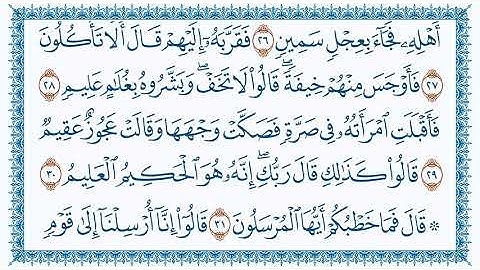 أَهْلِهِۦ فَجَآءَ بِعِجْلٍ سَمِينٍ ٢٦ فَقَرَّبَهُۥٓ إِلَيْهِمْ قَالَ أَلَا تَأْكُلُونَ
٢٧ فَأَوْجَسَ مِنْهُمْ خِيفَةً ۖ قَالُوا۟ لَا تَخَفْ ۖ وَبَشَّرُوهُ بِغُلَٰمٍ عَلِيمٍ ٢٨
فَأَقْبَلَتِ ٱمْرَأَتُهُۥ فِى صَرَّةٍ فَصَكَّتْ وَجْهَهَا وَقَالَتْ عَجُوزٌ عَقِيمٌ
٢٩ قَالُوا۟ كَذَٰلِكِ قَالَ رَبُّكِ ۖ إِنَّهُۥ هُوَ ٱلْحَكِيمُ ٱلْعَلِيمُ ٣٠
۞ قَالَ فَمَا خَطْبُكُمْ أَيُّهَا ٱلْمُرْسَلُونَ ٣١ قَالُوٓا۟ إِنَّآ أُرْسِلْنَآ إِلَىٰ قَوْمٍ